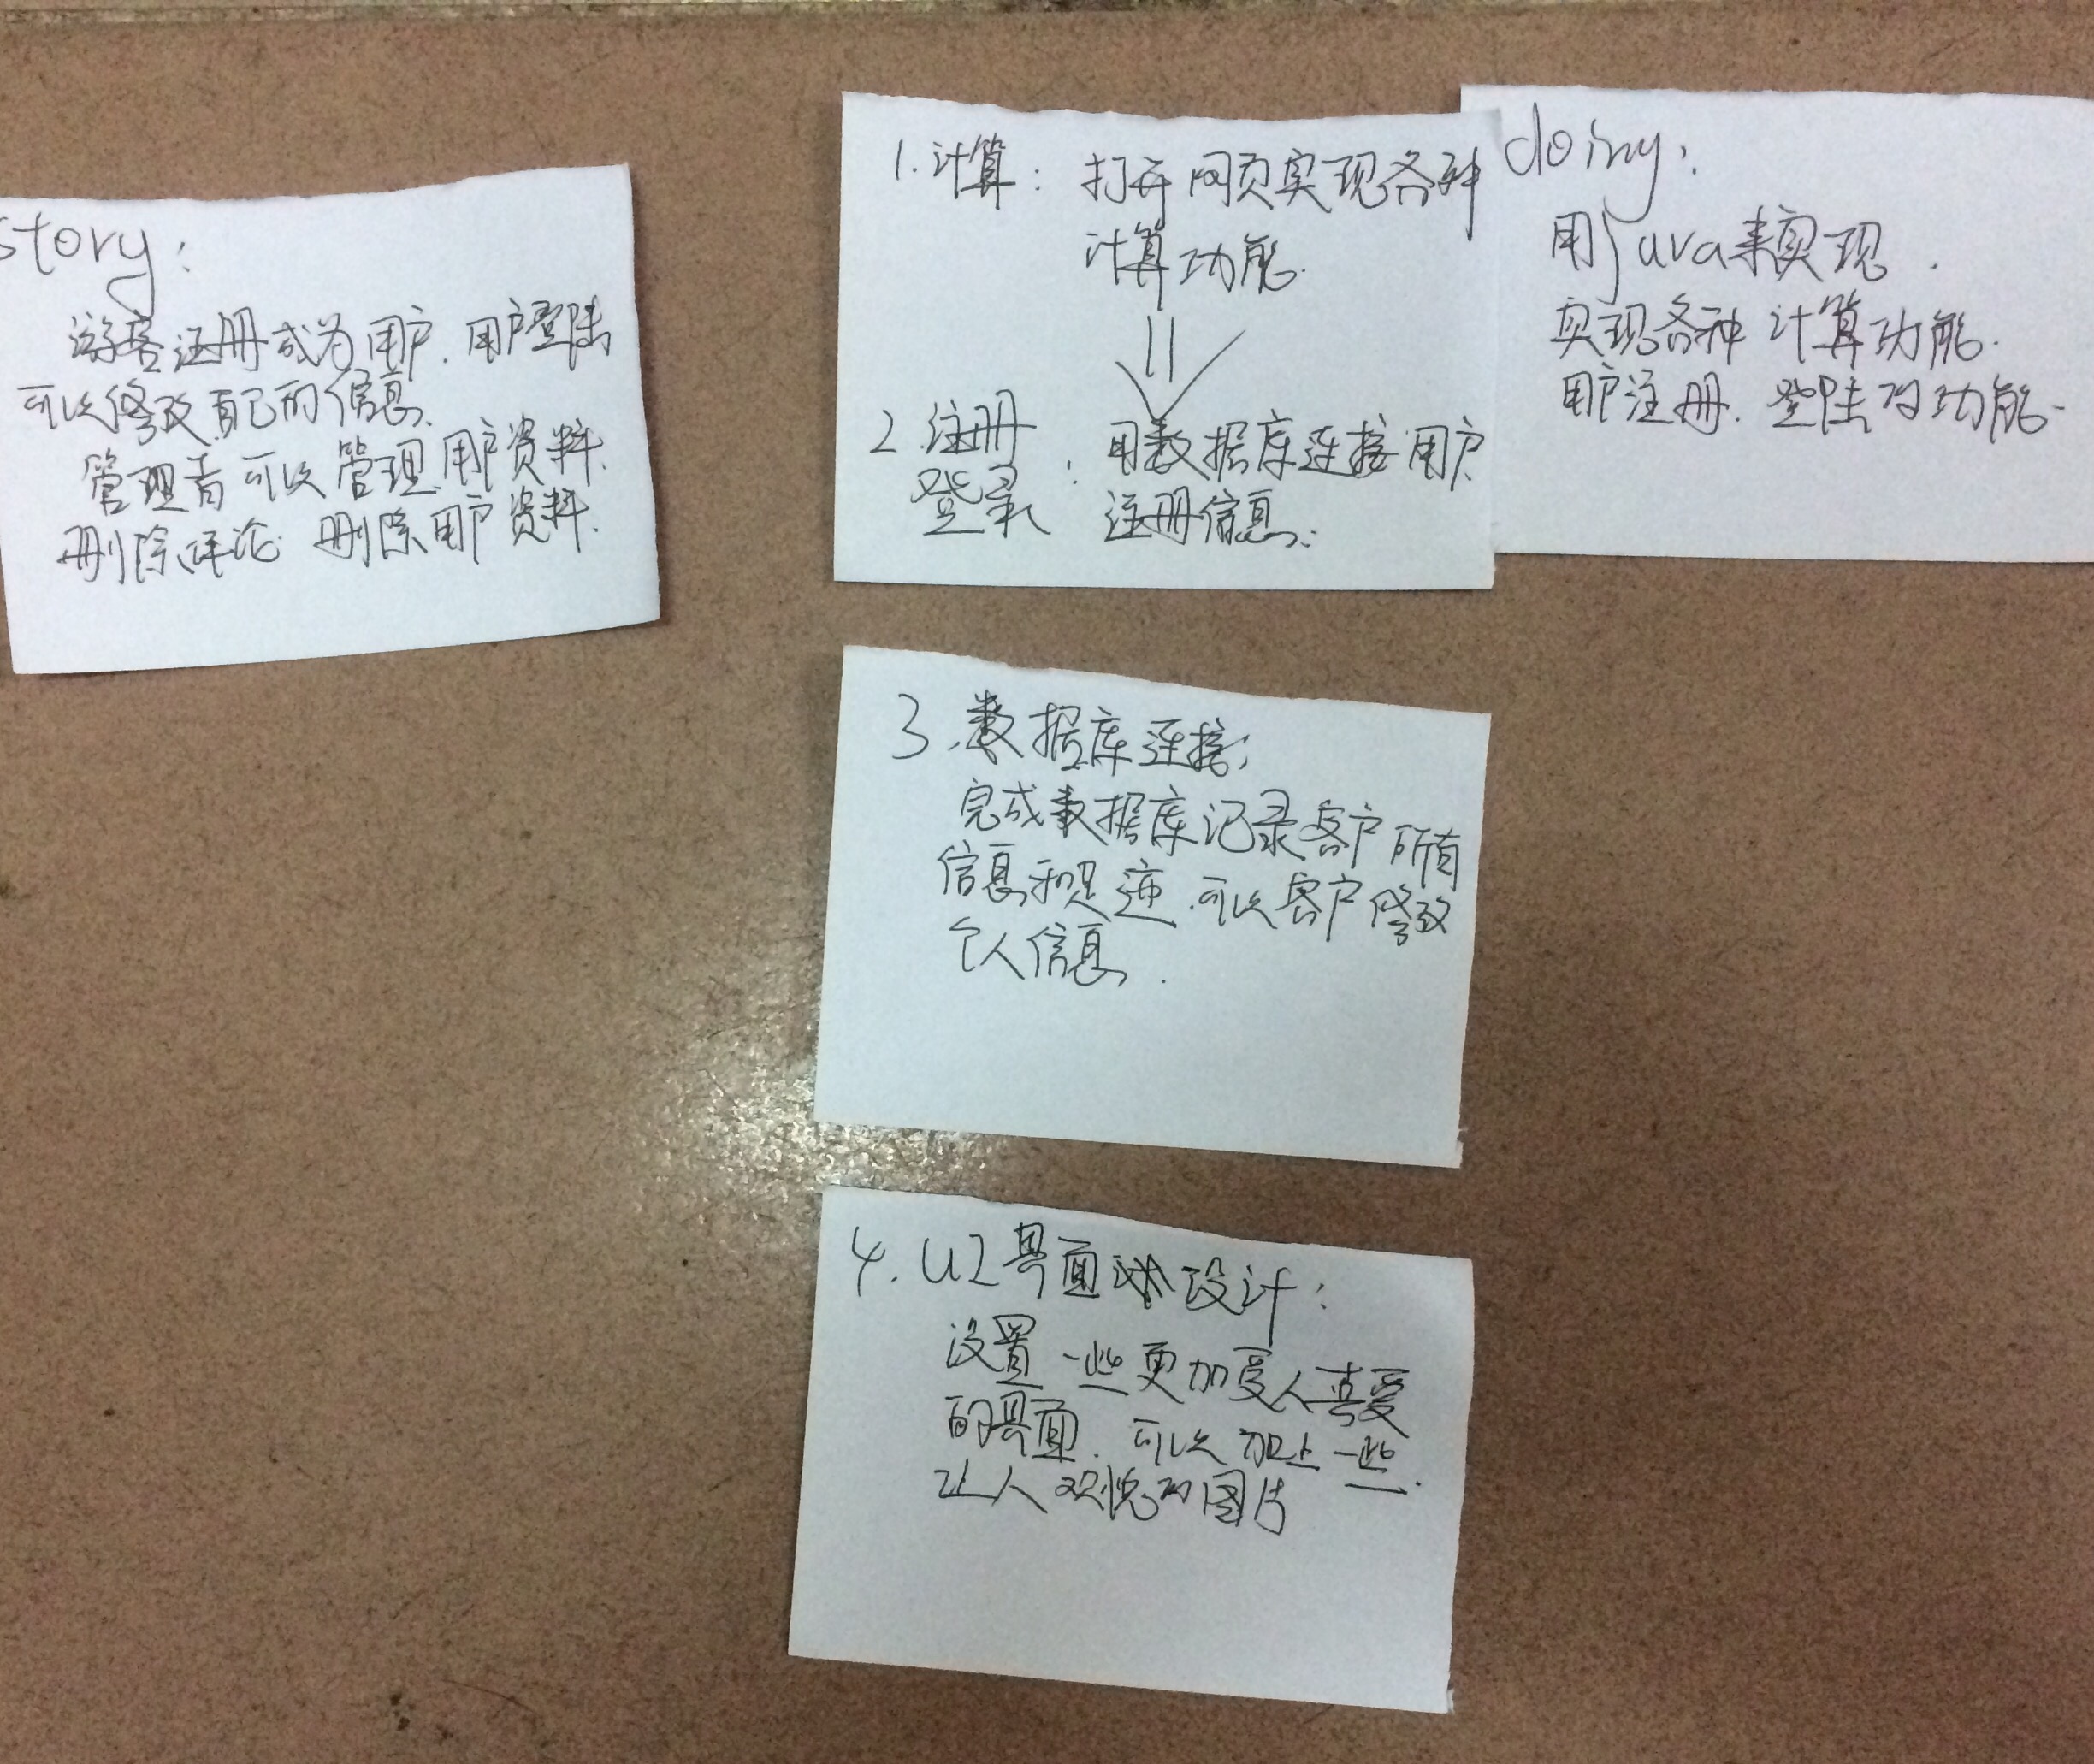 story:
游客注册成为用户.用户登陆
可以修改自己的信息.
管理者可以管理用户资料.
删除评论 删除用户资料.
1.计算: 打开网页实现各种
计算功能.
2.注册
登录: 用数据库连接用户
注册信息.
3.数据库连接:
完成数据库记录客户所有
信息和 .可以客户修改
个人信息.
4.UI界面 设计:
设置一些更加受人喜爱
的界面.可以加上一些
让人 的图片
doing:
用java来实现.
实现各种计算功能.
用户注册.登陆的功能.